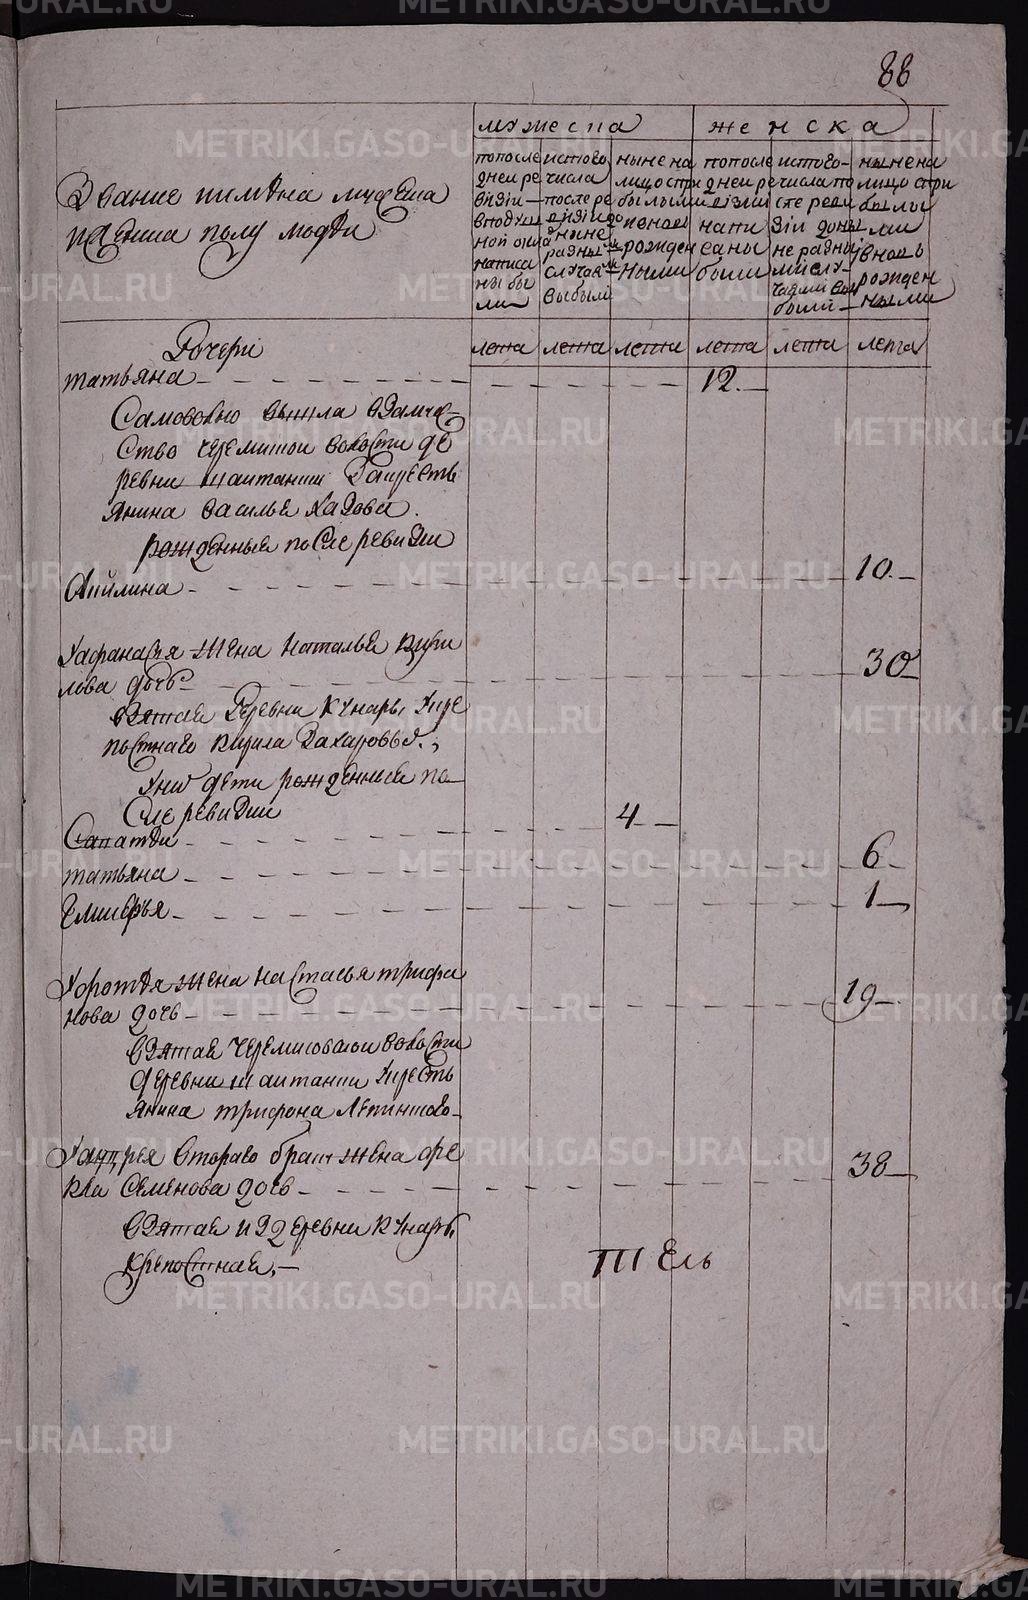 88
мужеска
женска
Звание имяна мужеска
и женска полу людям
по после
дней ре
визии
в подуш
ной окла
написа
ны бы
ли
ис того
числа
после ре
визии до
ныне
разны ми
случаями
выбыли
ныне на
лицо с при
былыми
и вновь
рожден
ными
по после
дней ре
визии
напи
саны
были
ис того
числа по
сле реви
зии до ны
не разны
ми слу
чаями вы
были
ныне на
лицо с при
былы
ми
и вновь
рожден
ными
лета лета лета лета лета лета
Дочери
татьяна 12
Самовольно вышла взамуже
ство черемиской волости де
ревни шаитанки за кресть
янина василья
рожденные после ревизии
Акилина 10
У афанасья жена наталья кири
лова дочь 30
взятая деревни кунары у кре
постнаго кирила захарова
у них дети рожденные по
сле ревизии
4
татьяна 6
1
жена настасья трифа
нова дочь 19
взятая черемисовской волости
деревни шаитанки у кресть
янина трифона
У андрея втораго брата жена фе
кла семенова дочь 38
взятая из деревни кунары
крепостная
тель
METRIKI.GASO-URAL.RU